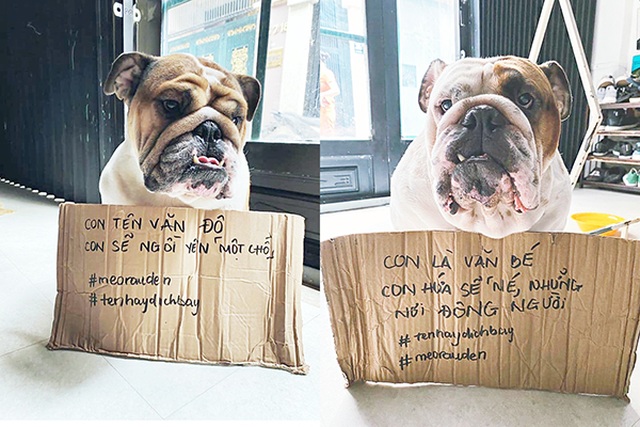 CON TÊN VĂN ĐÔ
CON SẼ NGỒI YÊN "MỘT CHỖ"
#meorauden
#tenhaydichbay
CON LÀ VĂN BÉ
CON HỨA SẼ "NÉ" NHỮNG
NƠI ĐÔNG NGƯỜI
#tenhaydichbay
#meorauden